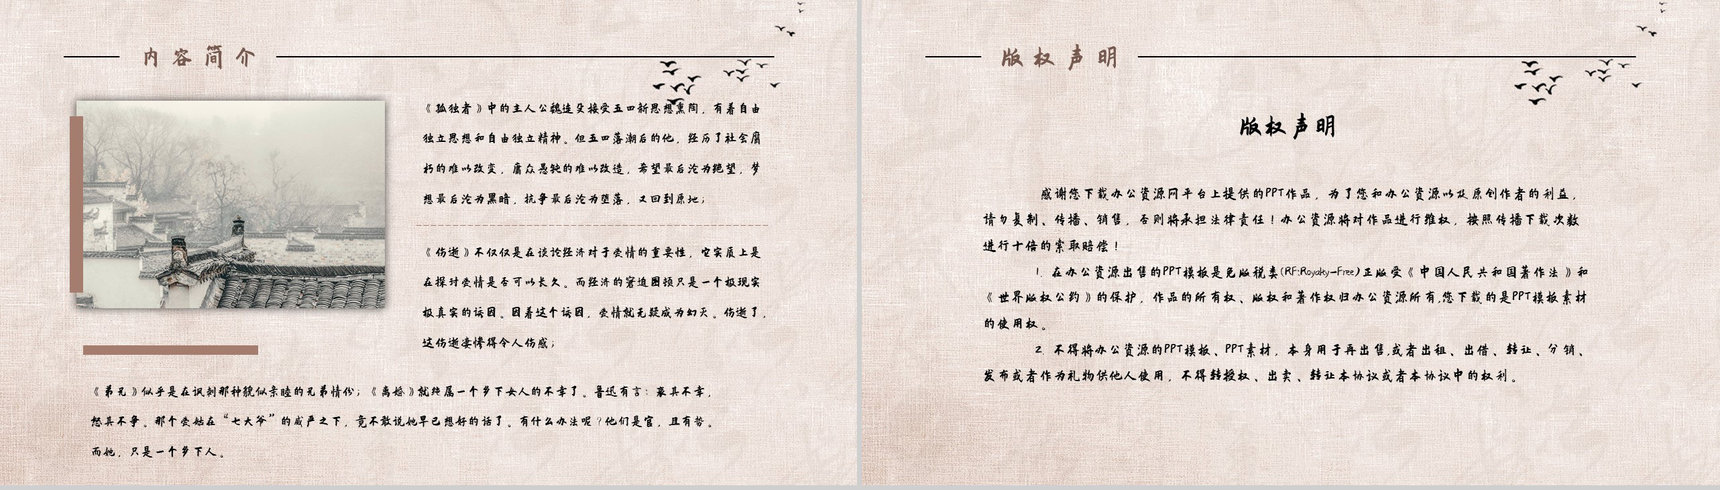 内容简介
《孤独者》中的主人公魏连殳接受五四新思想熏陶，有着自由
独立思想和自由独立精神。但五四落潮后的他，经历了社会腐
朽的难以改变，庸众愚钝的难以改造，希望最后沦为绝望，梦
想最后沦为黑暗，抗争最后沦为堕落，又回到原地；
《伤逝》不仅仅是在谈论经济对于爱情的重要性，它实质上是
在探讨爱情是否可以长久。而经济的窘迫困顿只是一个极现实
极真实的诱因。因着这个诱因，爱情就无疑成为幻灭。伤逝了，
这伤逝凄惨得令人伤感；
《弟兄》似乎是在讽刺那种貌似亲睦的兄弟情份；《离婚》就纯属一个乡下女人的不幸了。鲁迅有言：哀其不幸，
怒其不争。那个爱姑在“七大爷”的威严之下，竟不敢说她早已想好的话了。有什么办法呢？他们是官，且有势。
而她，只是一个乡下人。
版权声明
版权声明
感谢您下载办公资源网平台上提供的PPT作品，为了您和办公资源以及原创作者的利益，
请勿复制、传播、销售，否则将承担法律责任！办公资源将对作品进行维权，按照传播下载次数
进行十倍的索取赔偿！
1. 在办公资源出售的PPT模板是免版税类(RF:Royalty-Free)正版受《中国人民共和国著作法》和
《世界版权公约》的保护，作品的所有权、版权和著作权归办公资源所有,您下载的是PPT模板素材
的使用权。
2. 不得将办公资源的PPT模板、PPT素材，本身用于再出售,或者出租、出借、转让、分销、
发布或者作为礼物供他人使用，不得转授权、出卖、转让本协议或者本协议中的权利。